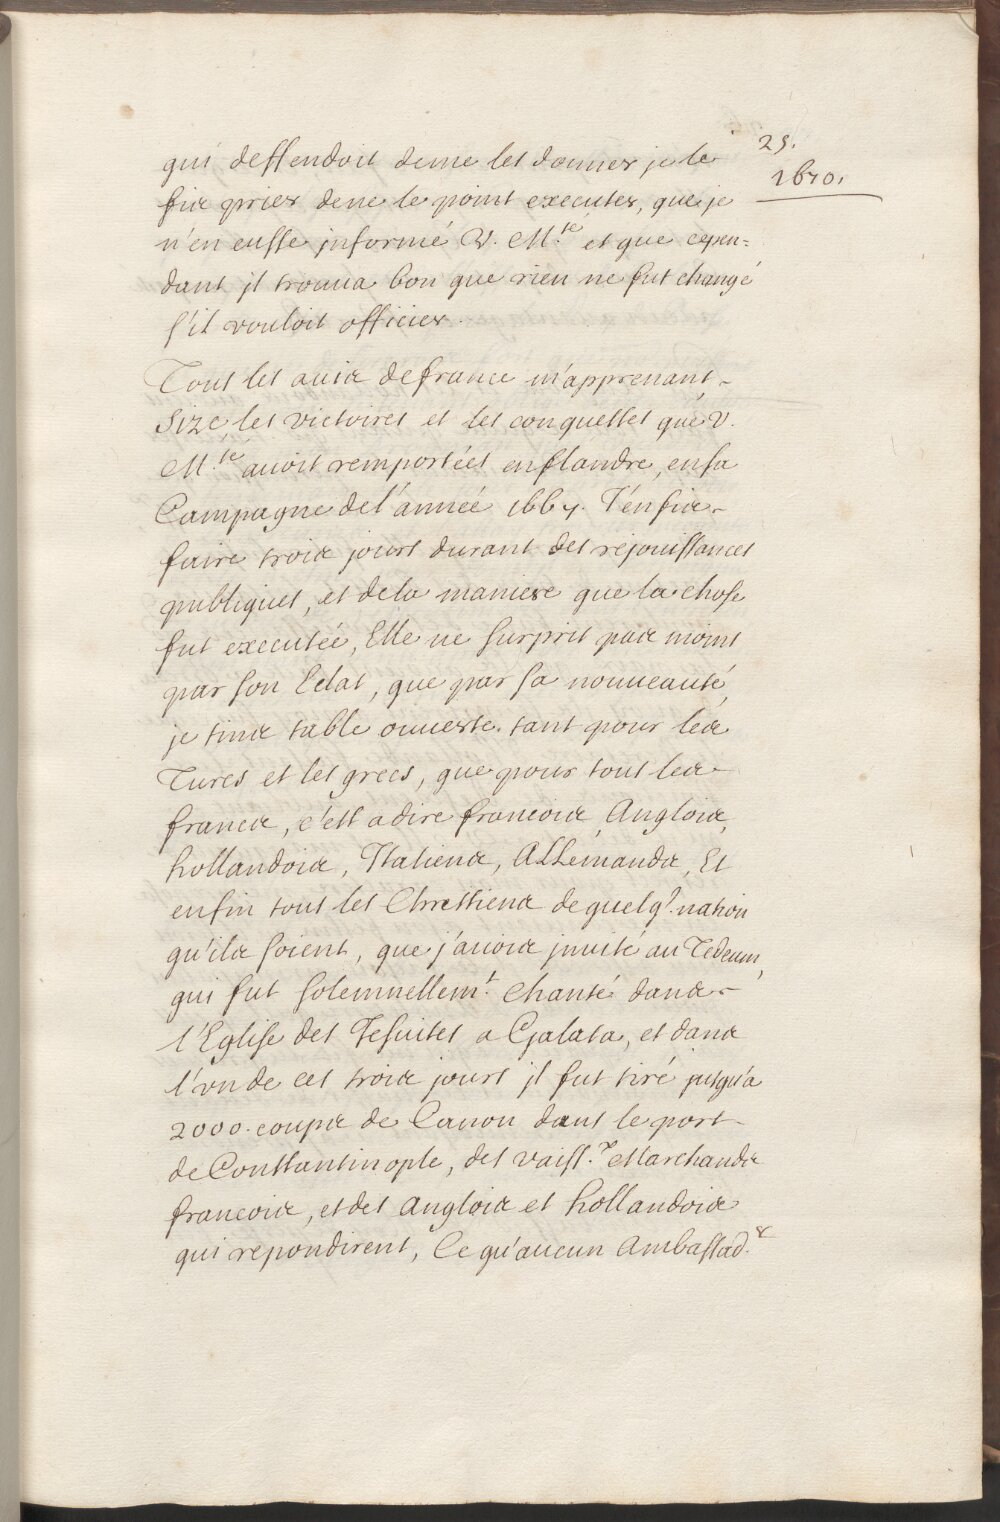 25.
1670.
qui deffendoit de me les donner je le
fis prier de ne le point executer, que je
n'en eusse jnformé V. M.té et que cepen=
dant jl trouua bon que rien ne fut changé
s'il vouloit officier.
Tous les auis de france m'apprenant
size les victoires et les conquestes que V.
M.té auoit remportées en flandre, en sa
Campagne de l'année 1667. J'en fis
faire trois jours durant des rejouissances
publiques, et de la maniere que la chose
fut executée, Elle ne surprit pas moins
par son Eclat, que par sa nouueauté,
je tins table ouuerte tant pour les
Turcs et les grecs, que pour tous les
francs, c'est a dire francois, Anglois,
hollandois, Italiens, Allemands, Et
enfin tous les Chrestiens de quelq.e nation
qu'ils soient, que j'auois jnuité au Tedeum,
qui fut solemnellem.t Chanté dans
l'Eglise des Jesuites a Galata, et dans
l'vn de ces trois jours jl fut tiré jusqu'a
2000. coups de Canon dans le port
de Constantinople, des vaiss.x Marchands
francois, et des Anglois et hollandois
qui repondirent, Ce qu'aucun Ambassad.r